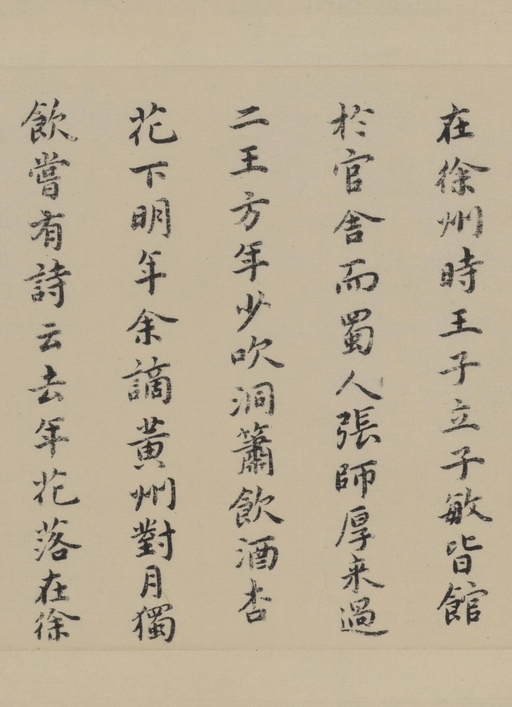 在徐州時王子立子敏皆館
於官舍而蜀人張師厚来過
二王方年少吹洞簫飲酒杏
花下明年余謫黃州對月獨
飲嘗有詩云去年花落在徐